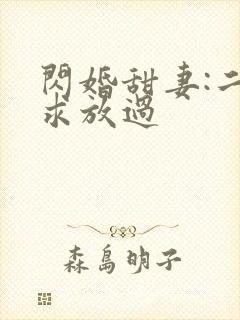 閃婚甜妻:二
求放過
森島明子